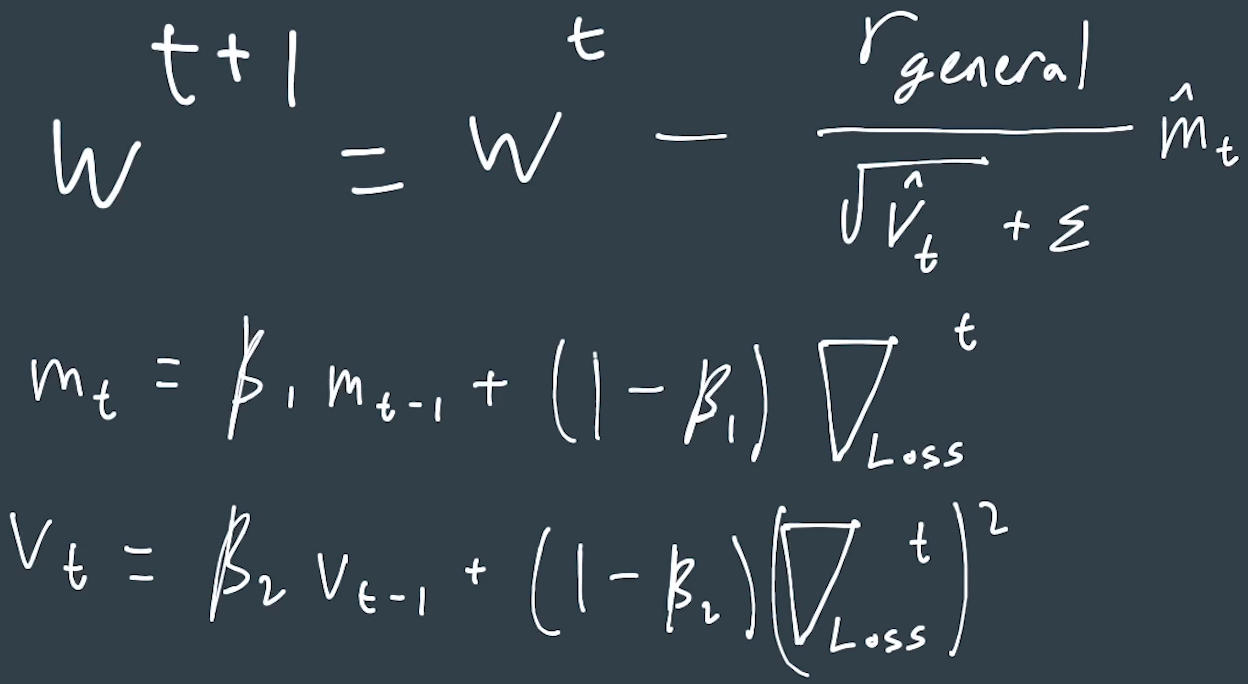 $w^{t+1} = w^{t} - \frac{r_{general}}{\sqrt{\hat{v}_t} + \varepsilon} \hat{m}_t$
$m_t = \beta_1 m_{t-1} + (1 - \beta_1) \nabla_{Loss}^{t}$
$v_t = \beta_2 v_{t-1} + (1 - \beta_2) (\nabla_{Loss}^{t})^2$